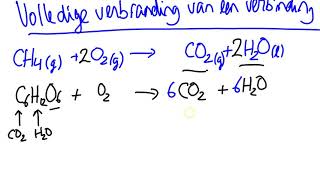 Volledige verbranding van een verbinding
CH₄(g) + 2O₂(g) → CO₂(g) + 2H₂O(l)
C₆H₁₂O₆ + O₂ → 6CO₂ + 6H₂O
↑ ↑
CO₂ H₂O